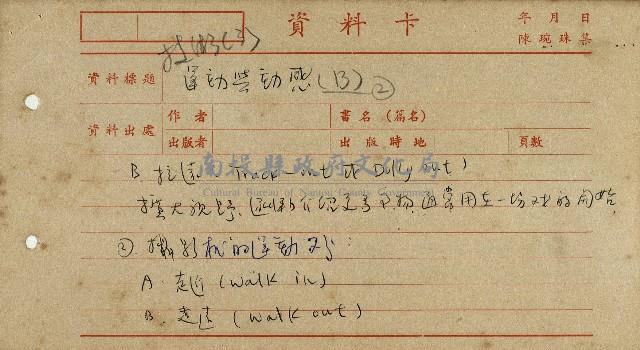 資料卡
年 月 日
陳琬珠集
資料標題 運動與動感(B) ②
資料出處
作者
書名(篇名)
出版者
出版時地
頁數
南投縣政府文化局
Cultural Bureau of Nantou County Government
B 拉遠 (Track-out or Dolly out)
擴大視野
通常用在一場戲的開始
② 攝影机的運動
A. 走近 (walk in)
B. 走遠 (walk out)